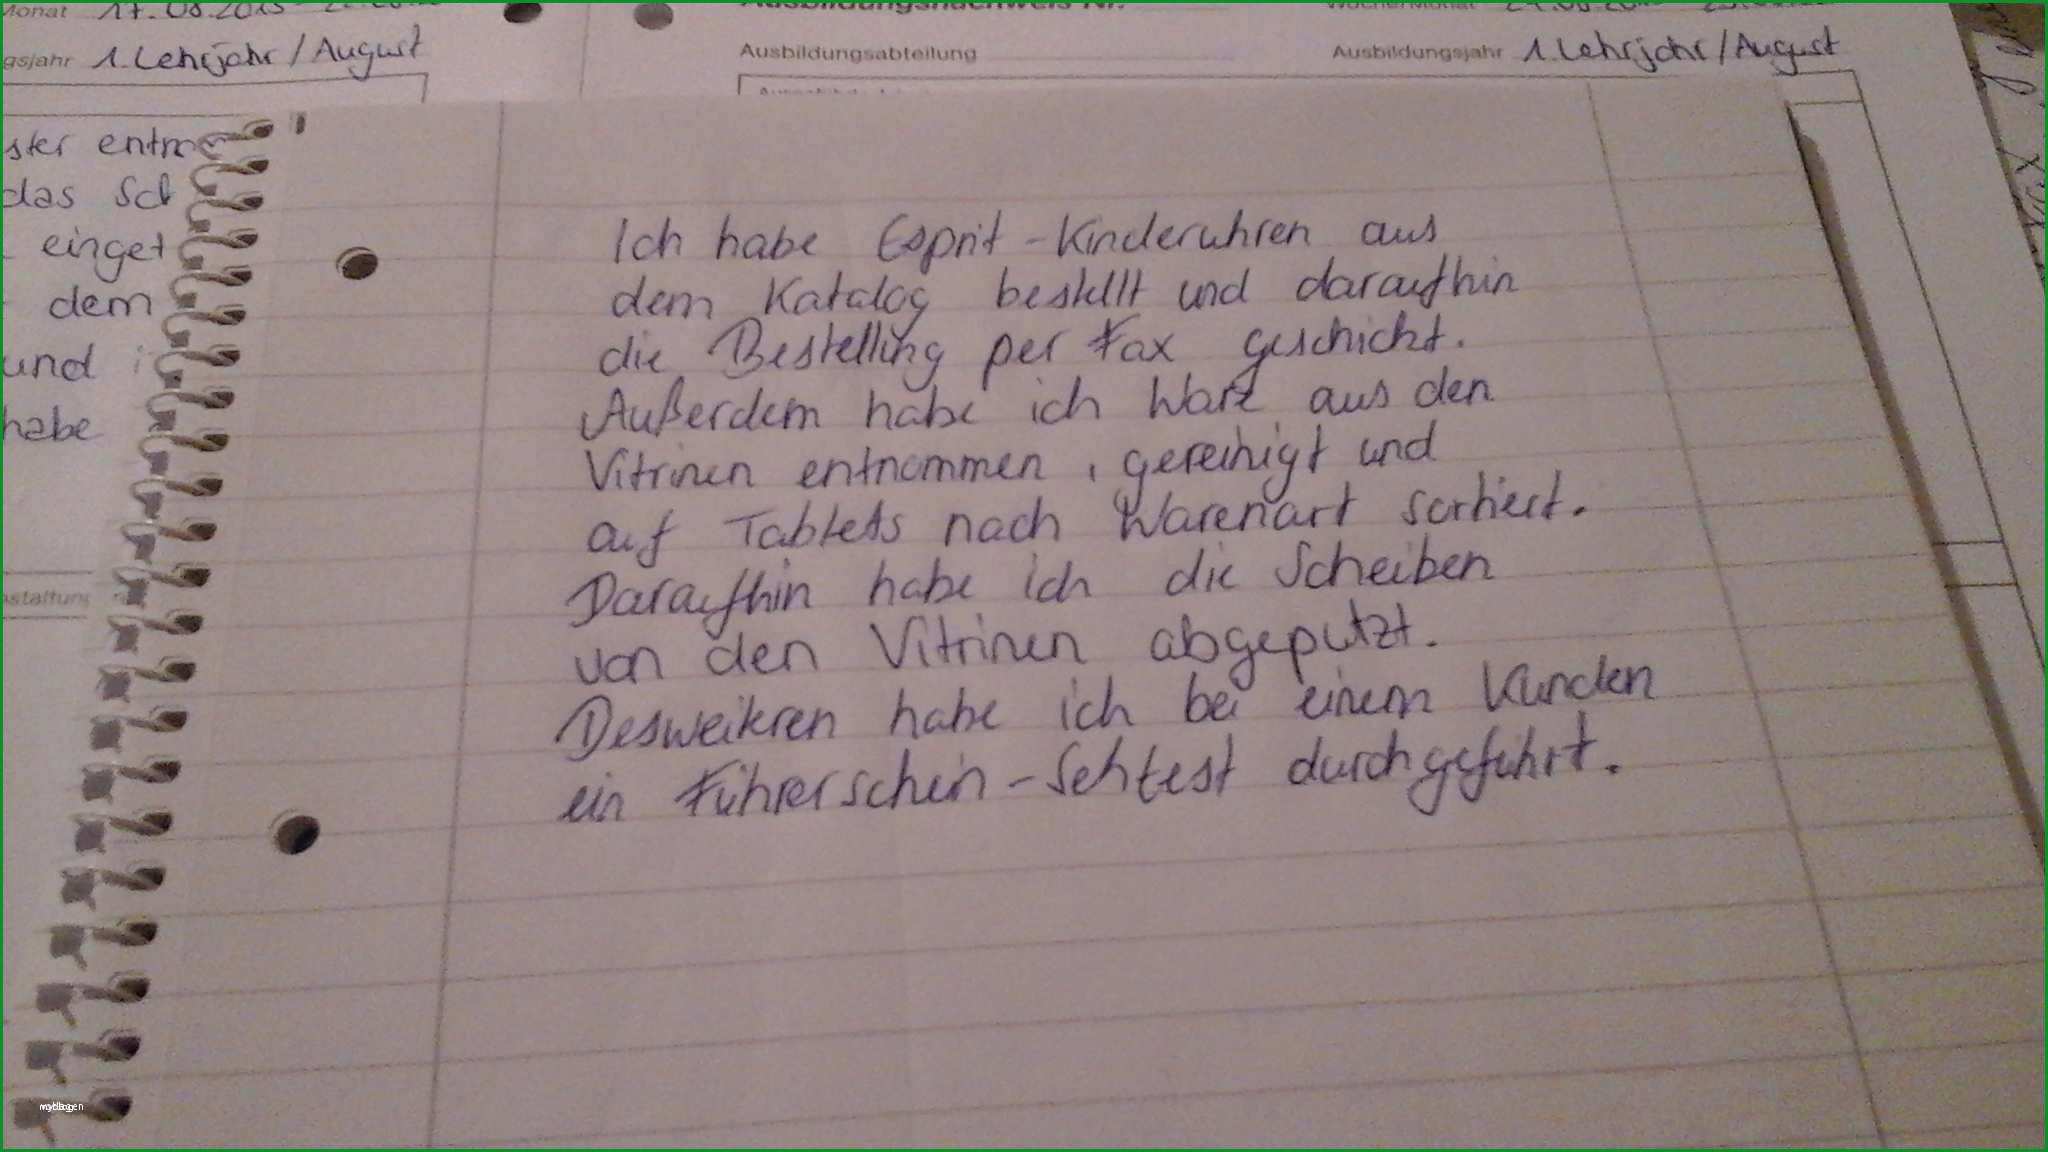 Monat 17.08.2015
Ausbildungsnachweis Nr.
gsjahr 1. Lehrjahr / August
Ausbildungsabteilung
Ausbildungsjahr 1. Lehrjahr / August
ster
das
einget
dem
und
habe
Ich habe Esprit-Kinderuhren aus
dem Katalog bestellt und daraufhin
die Bestellung per Fax geschickt.
Außerdem habe ich Ware aus den
Vitrinen entnommen, gereinigt und
auf Tabletts nach Warenart sortiert.
Daraufhin habe ich die Scheiben
von den Vitrinen abgeputzt.
Desweiteren habe ich bei einem Kunden
ein Führerschein-Sehtest durchgeführt.